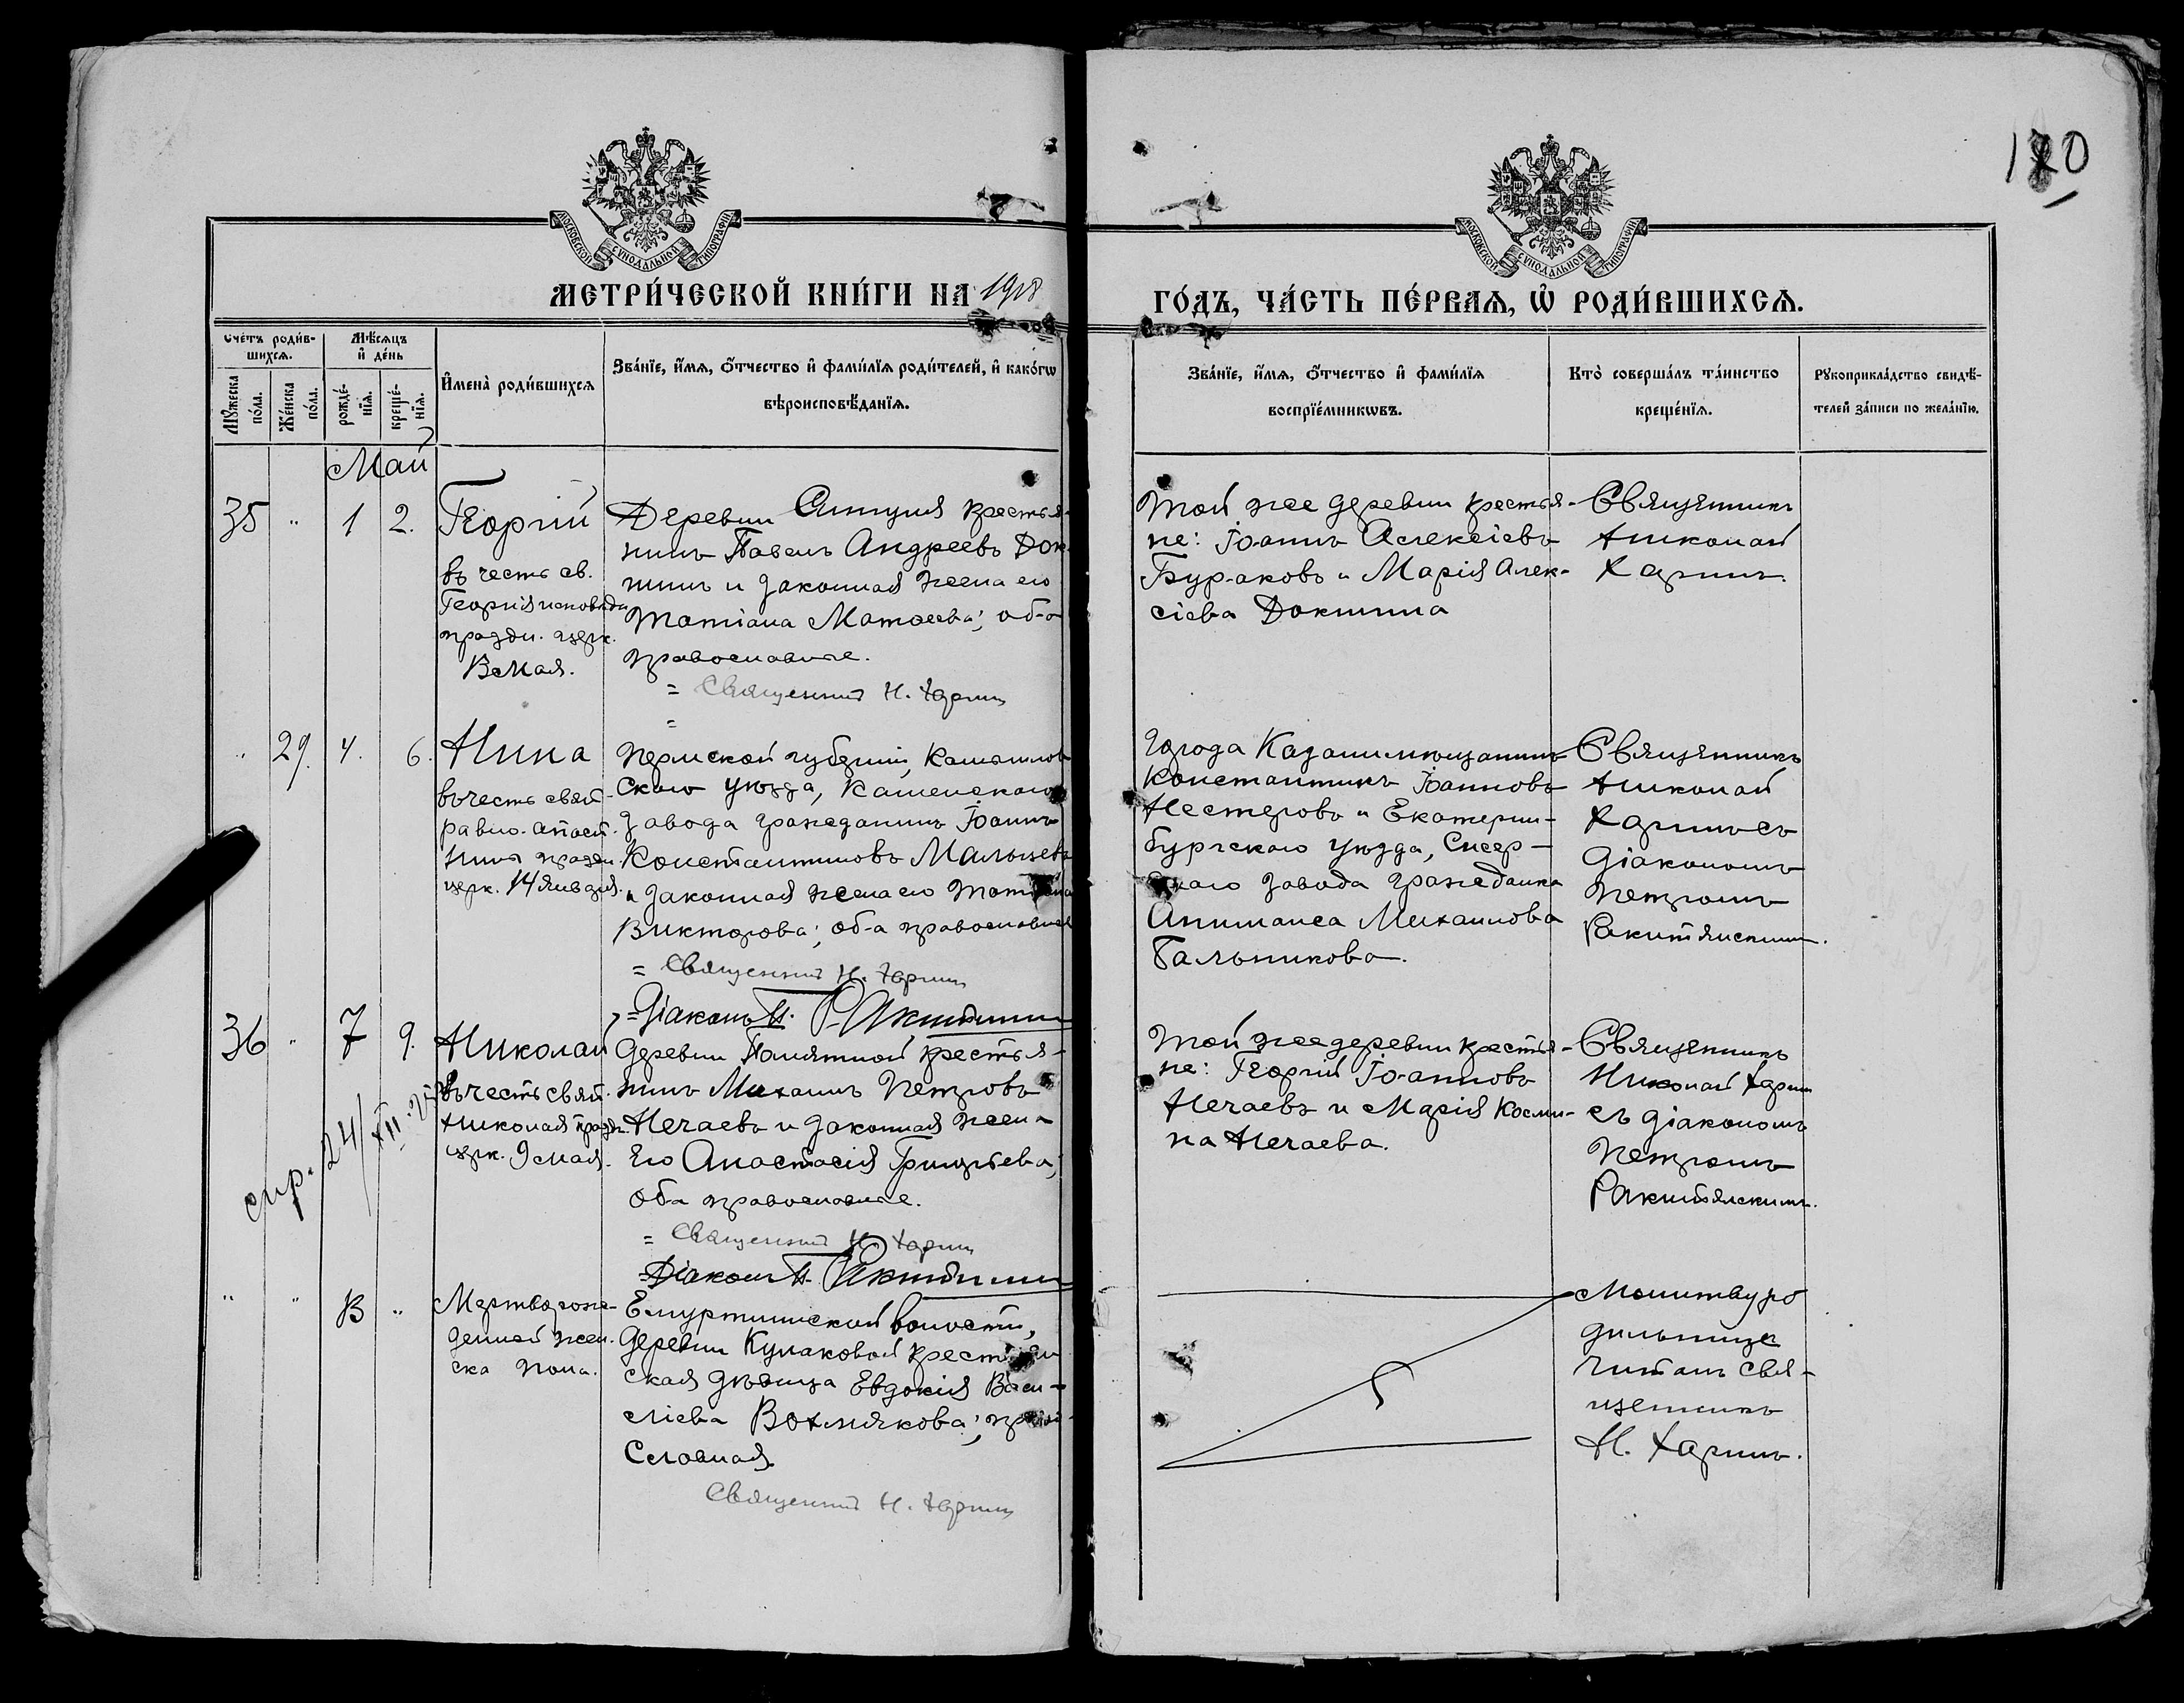 180
МОСКОВСКОЙ СѴНОДАЛЬНОЙ ТИПОГРАФІИ
МОСКОВСКОЙ СѴНОДАЛЬНОЙ ТИПОГРАФІИ
МЕТРИ́ЧЕСКОЙ КНИ́ГИ НА 1918
ГО́ДЪ, ЧА́СТЬ ПЕ́РВАЯ, Ѡ҆ РОДИ́ВШИХСЯ.
Сче́тъ роди́в-
шихся.
Мѣ́сяцъ
и҆ де́нь
Мꙋ́жеска
по́ла.
Же́нска
по́ла.
рожде́-
нїя.
креще́-
нїя.
И҆мена̀ роди́вшихся
Зва́нїе, и҆́мя, ѻ҆́тчество и҆ фами́лїя роди́телей, и҆ како́гѡ
вѣроисповѣ́данїя.
Зва́нїе, и҆́мя, ѻ҆́тчество и҆ фами́лїя
воспрїе́мникѡвъ.
Кто̀ соверша́лъ та́инство
креще́нїя.
Рꙋкоприкла́дство свидѣ́-
телей за́писи по жела́нїю.
Май
35 " 1 2.
Георгій
въ честь св.
Георгія исповѣдн.
праздн. церк.
13 мая.
Деревни крестья-
нинъ Павелъ Андреевъ Док-
шинъ и законная жена его
Татіана Матѳеева; оба
православные.
= Священникъ Н. Харинъ
=
Той же деревни крестья-
не: Іоаннъ Алексіевъ
Бураковъ и Марія Алек-
сіева Докшина
Священникъ
Николай
Харинъ.
" 29. 4. 6.
Нина
въ честь свят.
равно-апост.
Нины праздн.
церк. 14 января.
Пермской губерніи, Камышлов
скаго уѣзда, Каменскаго
завода гражданинъ Іоаннъ
Константиновъ Мальцевъ
и законная жена его Татіана
Викторова; оба православные
= Священникъ Н. Харинъ
= Діаконъ П. Ракитянскій
Города Казани мѣщанинъ
Константинъ Іоанновъ
Нестеровъ и Екатерин-
бургскаго уѣзда, Сысер-
скаго завода гражданка
Анисья Михаилова
Бальникова.
Священникъ
Николай
Харинъ съ
діакономъ
Петромъ
Ракитянскимъ.
36 " 7 9.
Николай
въ честь свят.
Николая праздн.
церк. 9 мая.
спр. 24/XII.
деревни крестья-
нинъ Михаилъ Петровъ
Нечаевъ и законная жена
его Анастасія Григорьева;
оба православные.
= Священникъ Н. Харинъ
= Діаконъ П. Ракитянскій
Той же деревни крестья-
не: Георгій Іоанновъ
Нечаевъ и Марія Косми-
на Нечаева.
Священникъ
Николай Харинъ
съ діакономъ
Петромъ
Ракитянскимъ.
" " 13 "
Мертворож-
денной жен-
ска пола.
Емуртлинской волости,
деревни Кулаковой крестьян
ская дѣвица Евдокія Васи-
сліева Вохмякова; право-
славная.
Священникъ Н. Харинъ
Молитву ро
дильницѣ
читалъ свя-
щенникъ
Н. Харинъ.